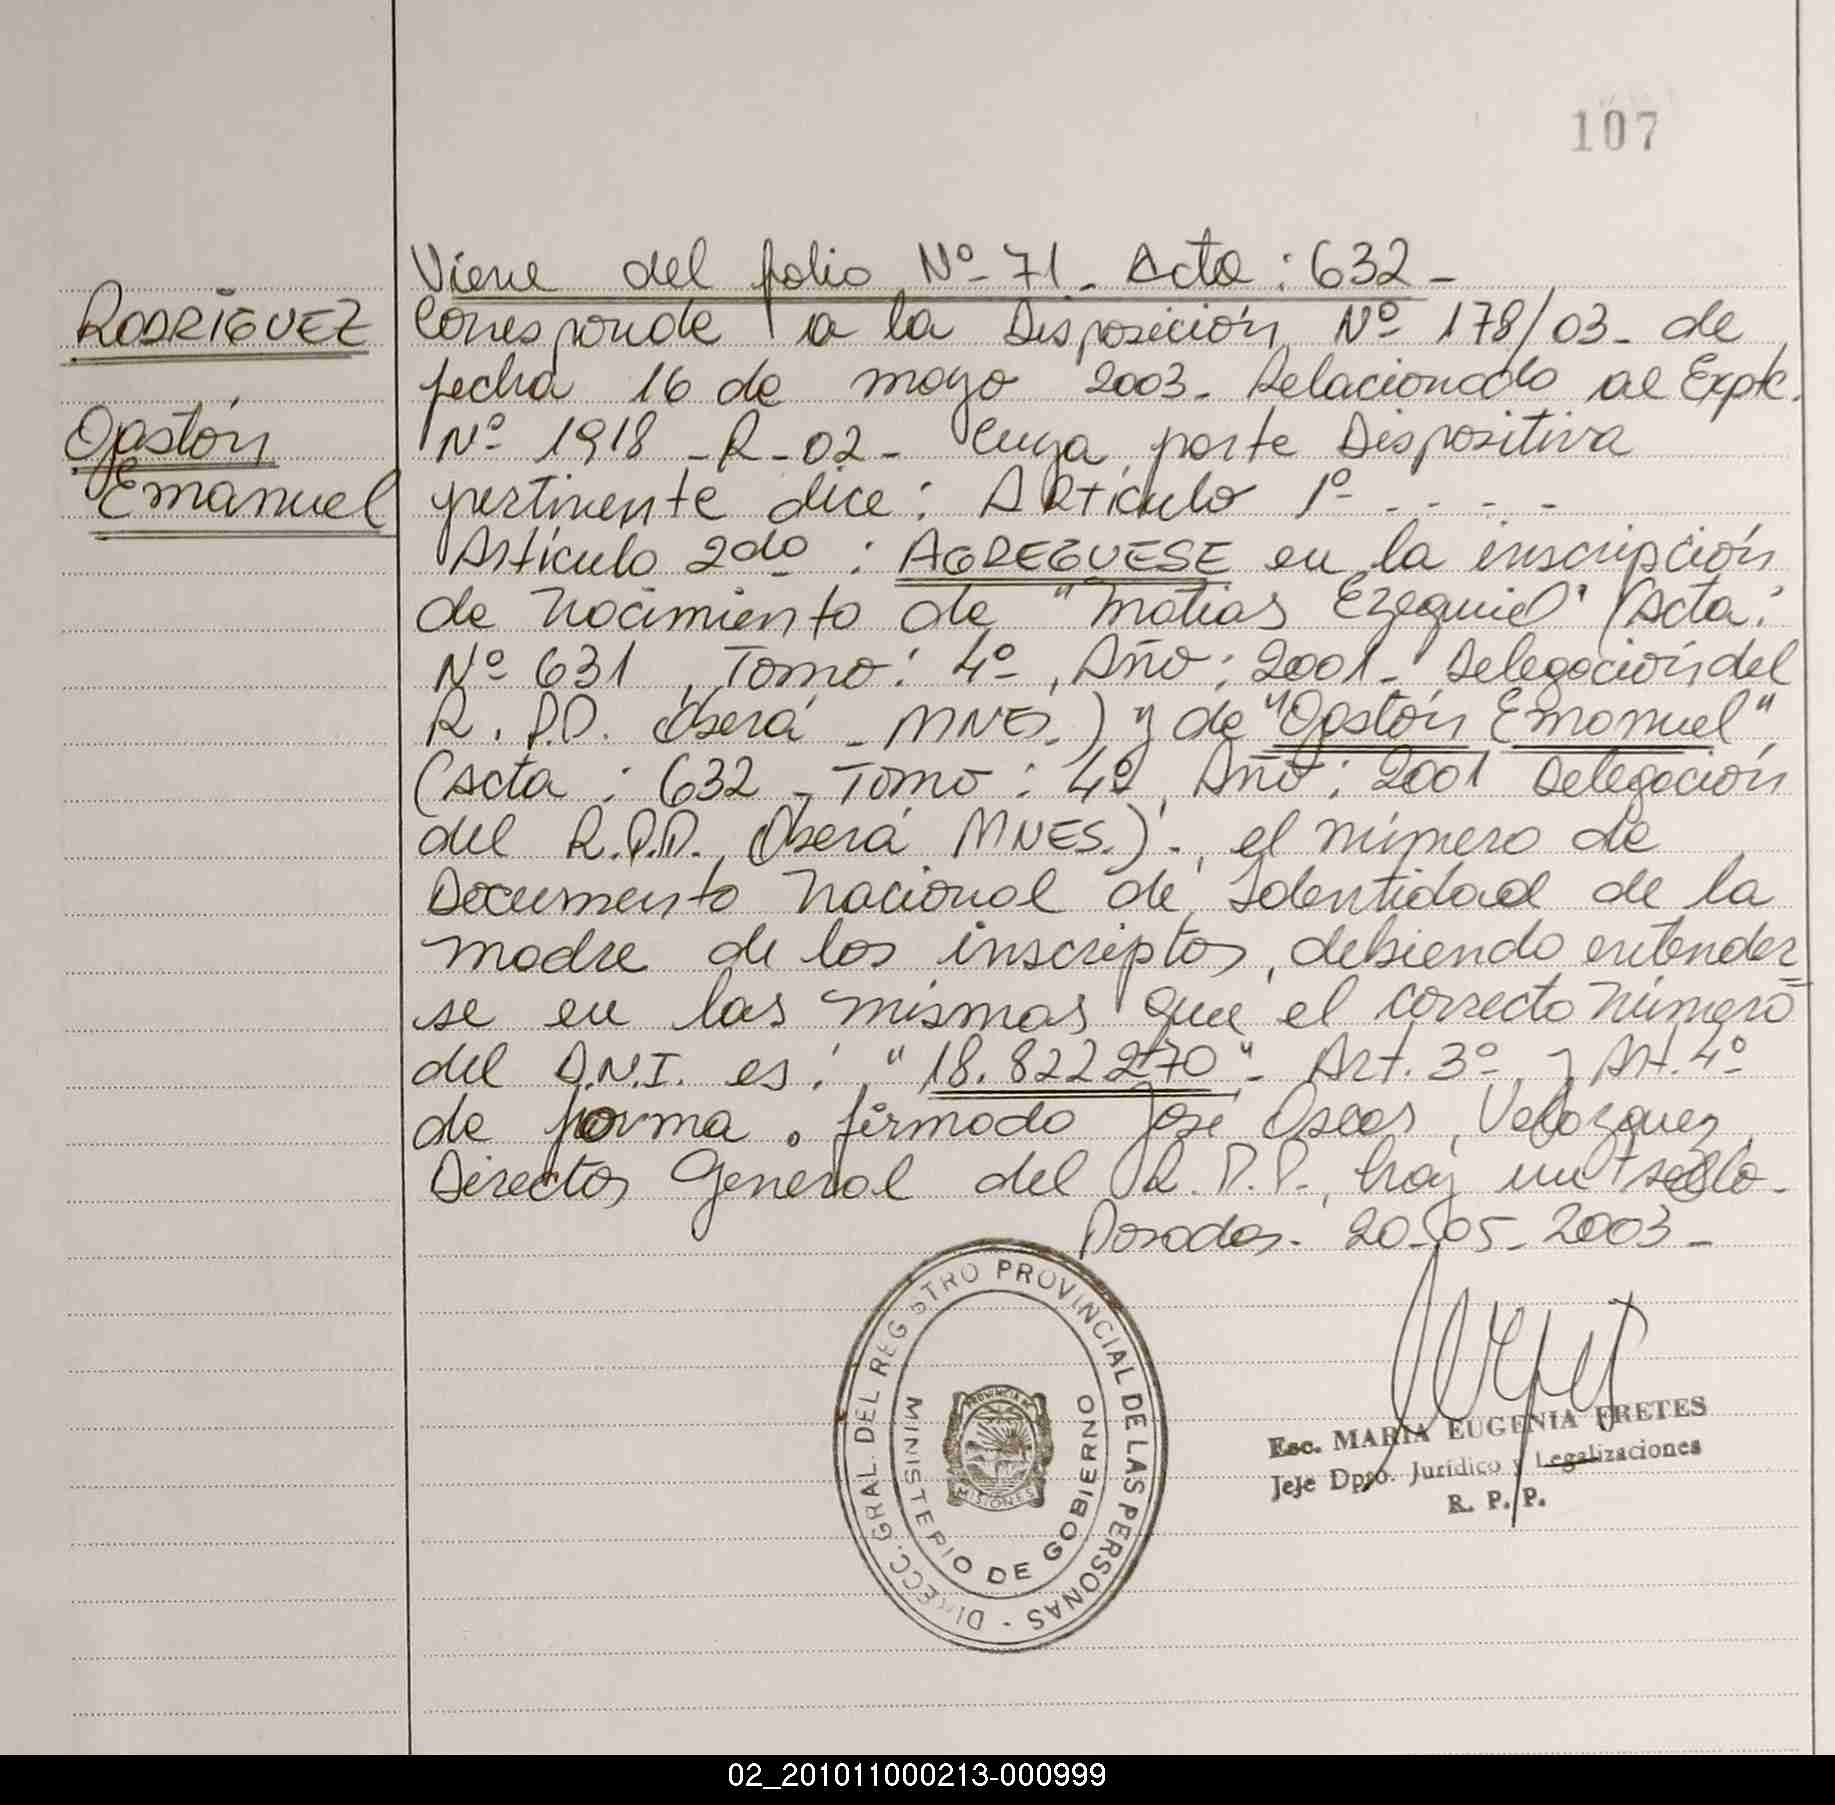 107
Viene del folio Nº 71. Acta: 632 -
RODRÍGUEZ
Corresponde a la Disposición Nº 178/03 - de
fecha 16 de mayo 2003 - Relacionado al Expte.
Gastón
Nº 1918 - R - 02 - Cuya parte Dispositiva
Emanuel
pertinente dice: Artículo 1º - - - -
Artículo 2do : AGREGUESE en la inscripción
de nacimiento de "Matias Ezequiel" (Acta:
Nº 631, Tomo: 4º, Año: 2001 - Delegación del
R.P.P. Oberá - MNES.) y de "Gastón Emanuel"
(Acta: 632 - Tomo: 4º, Año: 2001 Delegación
del R.P.P. Oberá MNES.) -, el número de
Documento Nacional de Identidad de la
madre de los inscriptos, debiendo entender=
se en las mismas que el correcto número
del D.N.I. es: "18.822270" - Art. 3º y Art. 4º
de forma. firmado José Oscar Velázquez
Director General del R.P.P., hay un sello -
Posadas - 20-05-2003 -
DIRECC. GRAL. DEL REGISTRO PROVINCIAL DE LAS PERSONAS -
MINISTERIO DE GOBIERNO
PROVINCIA DE
MISIONES
Esc. MARIA EUGENIA FRETES
Jefe Dpto. Jurídico y Legalizaciones
R. P. P.
02_201011000213-000999